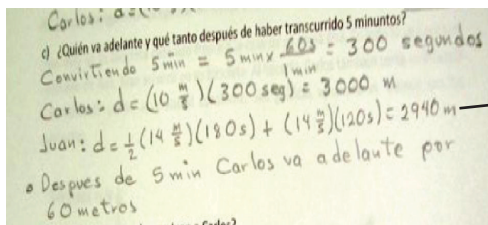 Carlos: d=(10
c) ¿Quién va adelante y qué tanto después de haber transcurrido 5 minuntos?
Convirtiendo 5 min = 5 min x 60s / 1 min = 300 segundos
Carlos: d = (10 m/s)(300 seg) = 3000 m
Juan: d = 1/2 (14 m/s)(180s) + (14 m/s)(120s) = 2940 m
Despues de 5 min Carlos va adelante por
60 metros